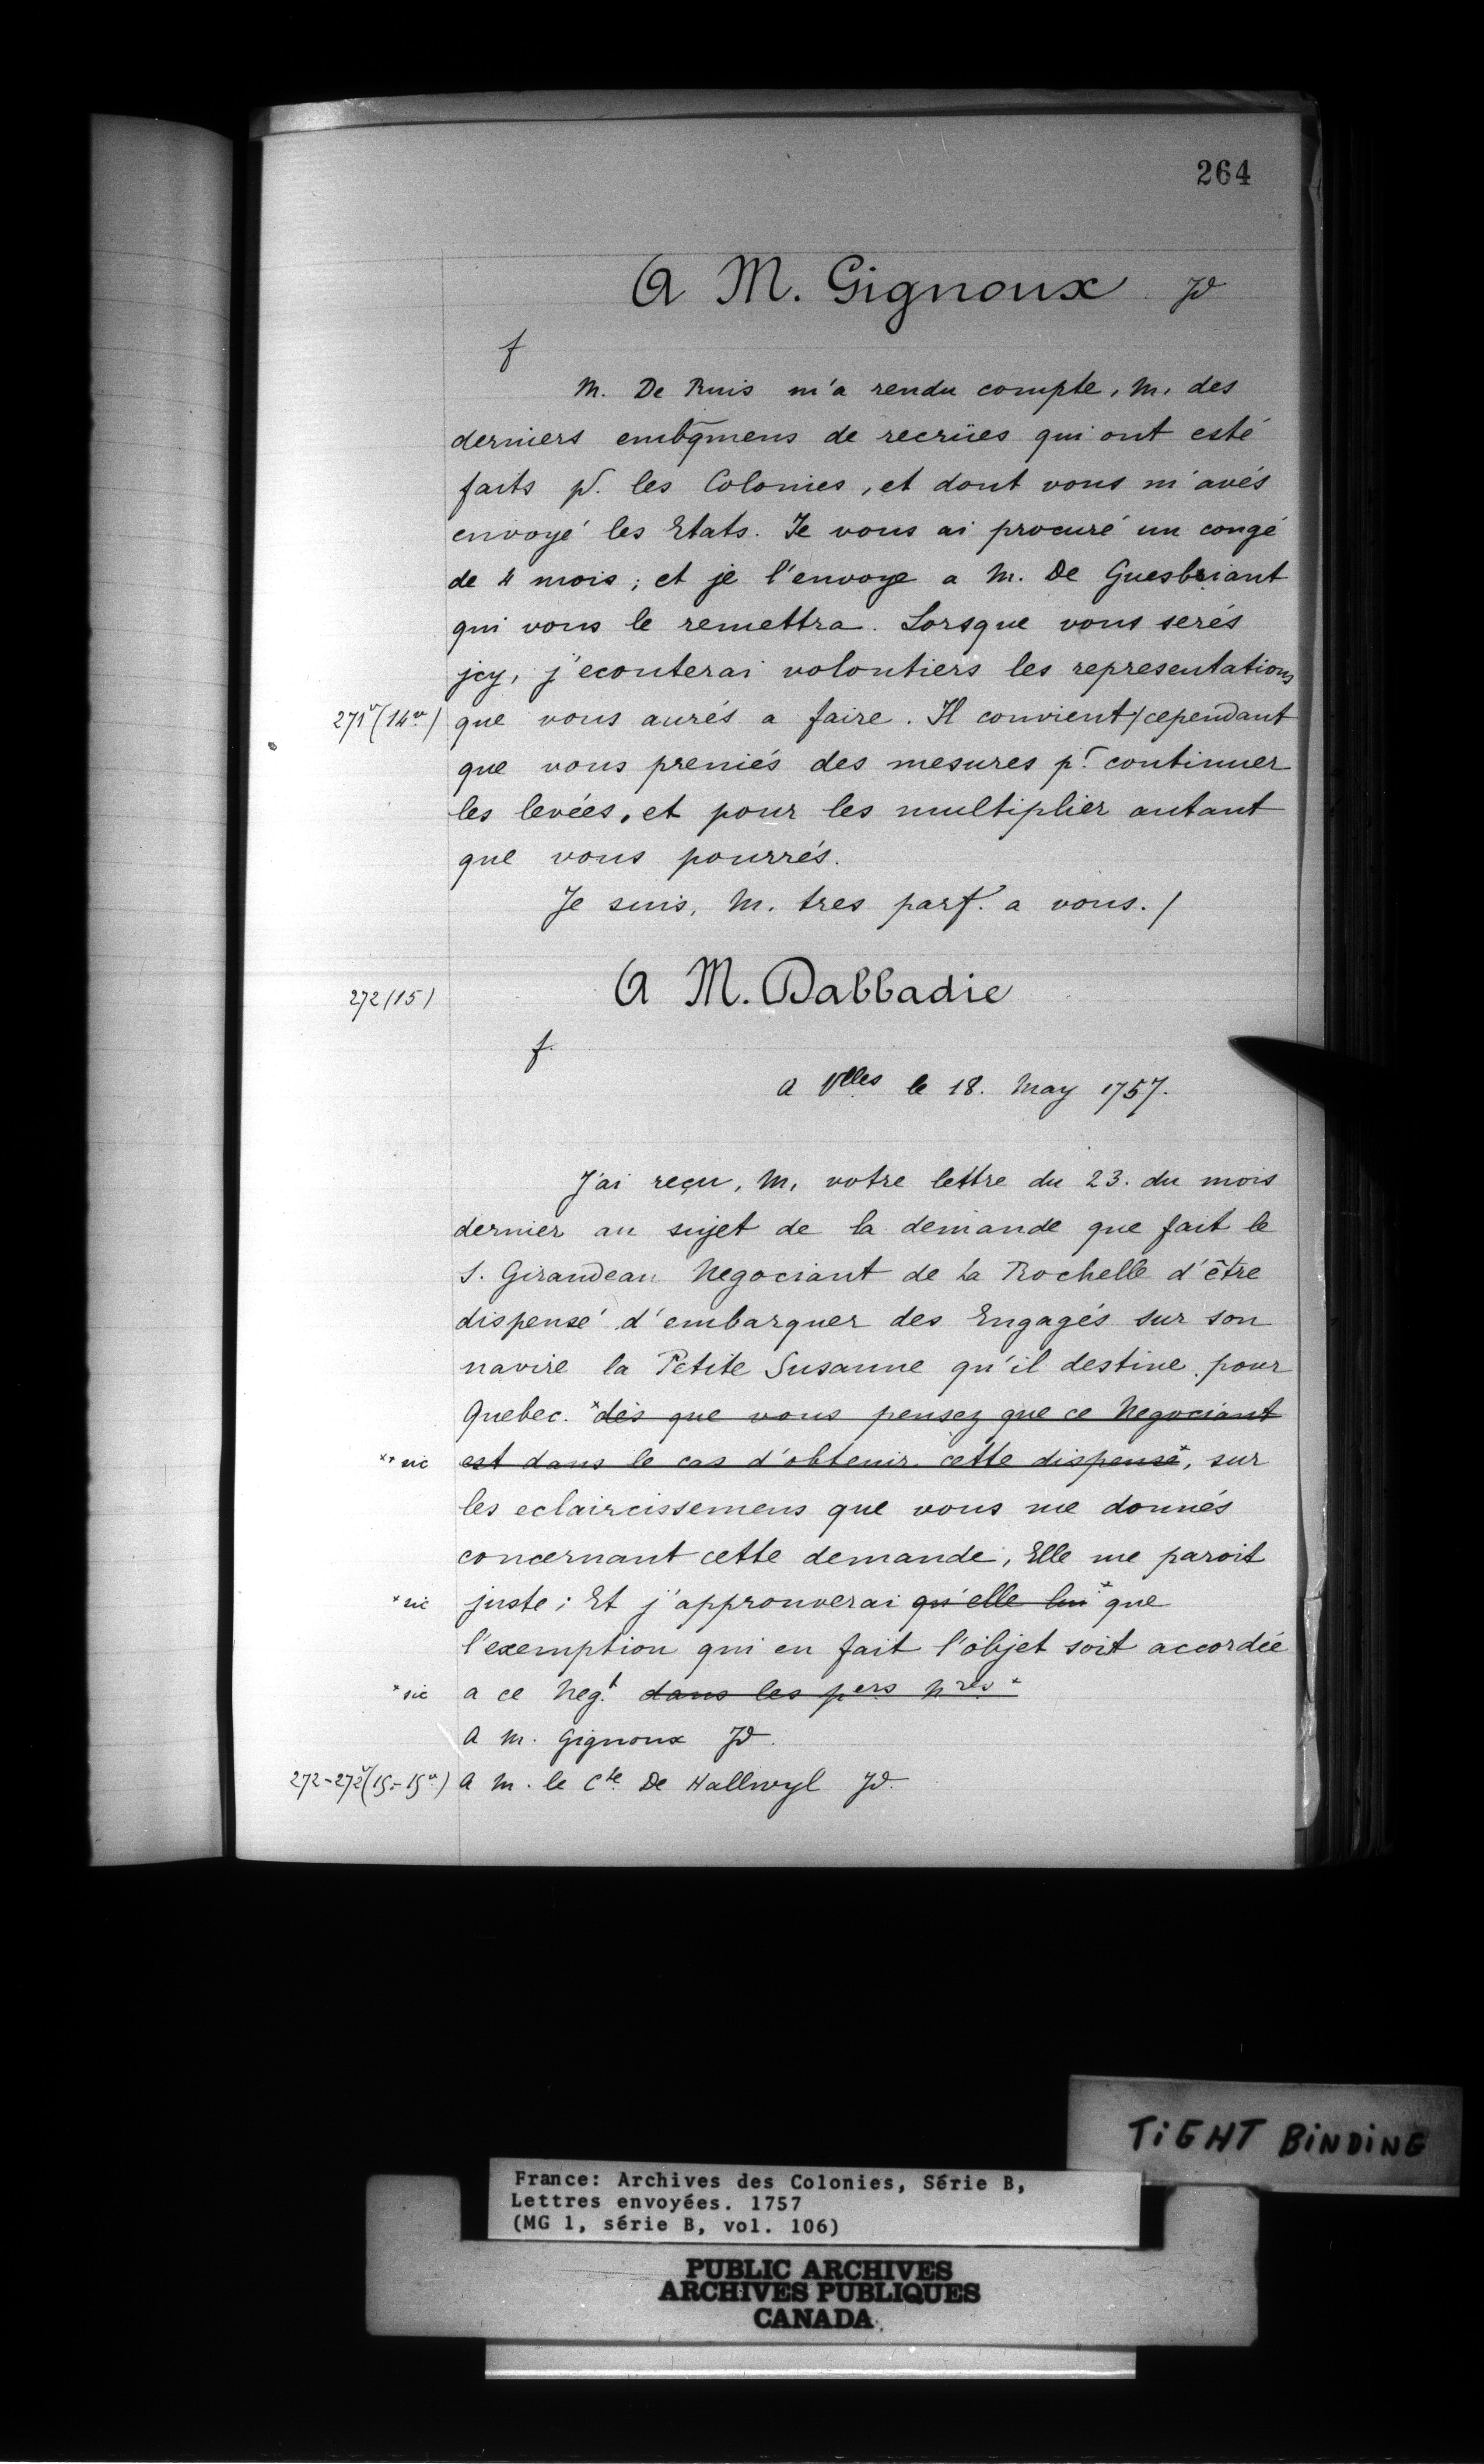 264
A M. Gignoux Jd
f
M. De Ruis m'a rendu compte, M, des
derniers embq̄mens de recrües qui ont esté
faits pr. les Colonies, et dont vous m'avés
envoyé les Etats. Je vous ai procuré un congé
de 4 mois; et je l'envoye a M. De Guesbriant
qui vous le remettra. Lorsque vous serés
jcy, j'ecouterai volontiers les representations
271v (14v) que vous aurés a faire. Il convient / cependant
que vous preniés des mesures pr. continuer
les levées, et pour les multiplier autant
que vous pourrés.
Je suis, M. tres parft. a vous. /
272 (15) A M. Dabbadie
f.
a Vlles le 18. May 1757.
J'ai reçu, M, votre lettre du 23. du mois
dernier au sujet de la demande que fait le
S. Giraudeau Negociant de La Rochelle d'être
dispensé d'embarquer des Engagés sur son
navire la Petite Susanne qu'il destine pour
Quebec. *dès que vous pensez que ce Negociant
** sic est dans le cas d'obtenir cette dispense*, sur
les eclaircissemens que vous me donnés
concernant cette demande, Elle me paroit
* sic juste; Et j'approuverai qu'elle lui * que
l'exemption qui en fait l'objet soit accordée
* sic a ce Negt. dans les pers nres *
A M. Gignoux Jd.
272-272v (15-15v) A M. le Cte De Hallwyl Jd.
TIGHT BINDING
France: Archives des Colonies, Série B,
Lettres envoyées. 1757
(MG 1, série B, vol. 106)
PUBLIC ARCHIVES
ARCHIVES PUBLIQUES
CANADA